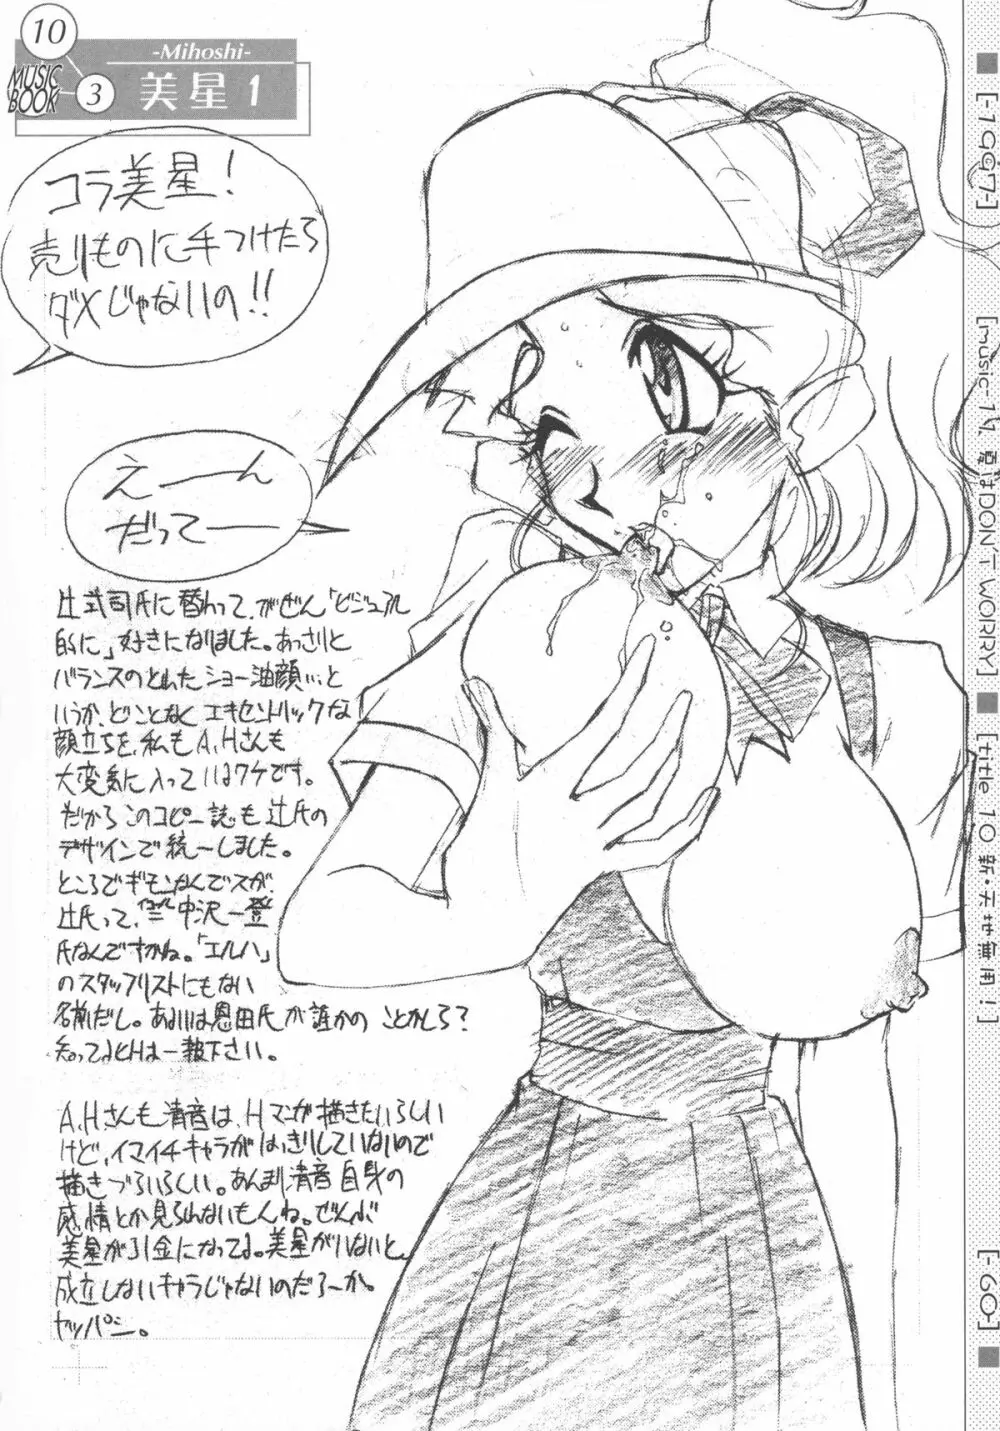 10
-Mihoshi-
MUSIC
BOOK
3
美星 1
コラ美星!
売りものに手つけたら
ダメじゃないの!!
えーーん
だってーー
辻武司氏に替わって、がぜん「ビジュアル
的に」好きになりました。あっさりと
バランスのとれたショー油顔…と
いうか、どことなくエキセントリックな
顔立ちを、私もA.Hさんも
大変気に入っているワケです。
だからこのコピー誌も辻氏の
デザインで統一しました。
ところでギモンなんでスが、
辻氏って、イコール=中沢一登
氏なんですかね。「エルハ」
のスタッフリストにもない
名前だし。あるいは恩田氏が誰かのことかしら?
知ってる人は一報下さい。
A.Hさんも清音は、Hマンガ描きたいらしい
けど、イマイチキャラがはっきりしていないので
描きづらいらしい。あんまり清音自身の
感情とか見られないもんね。ぜんぶ
美星が引金になってる。美星がいないと
成立しないキャラじゃないのだろーか。
ヤッパシ。
[-1997-]
[music-11 夏はDON'T WORRY]
[title 10 新・天地無用!]
[-60-]